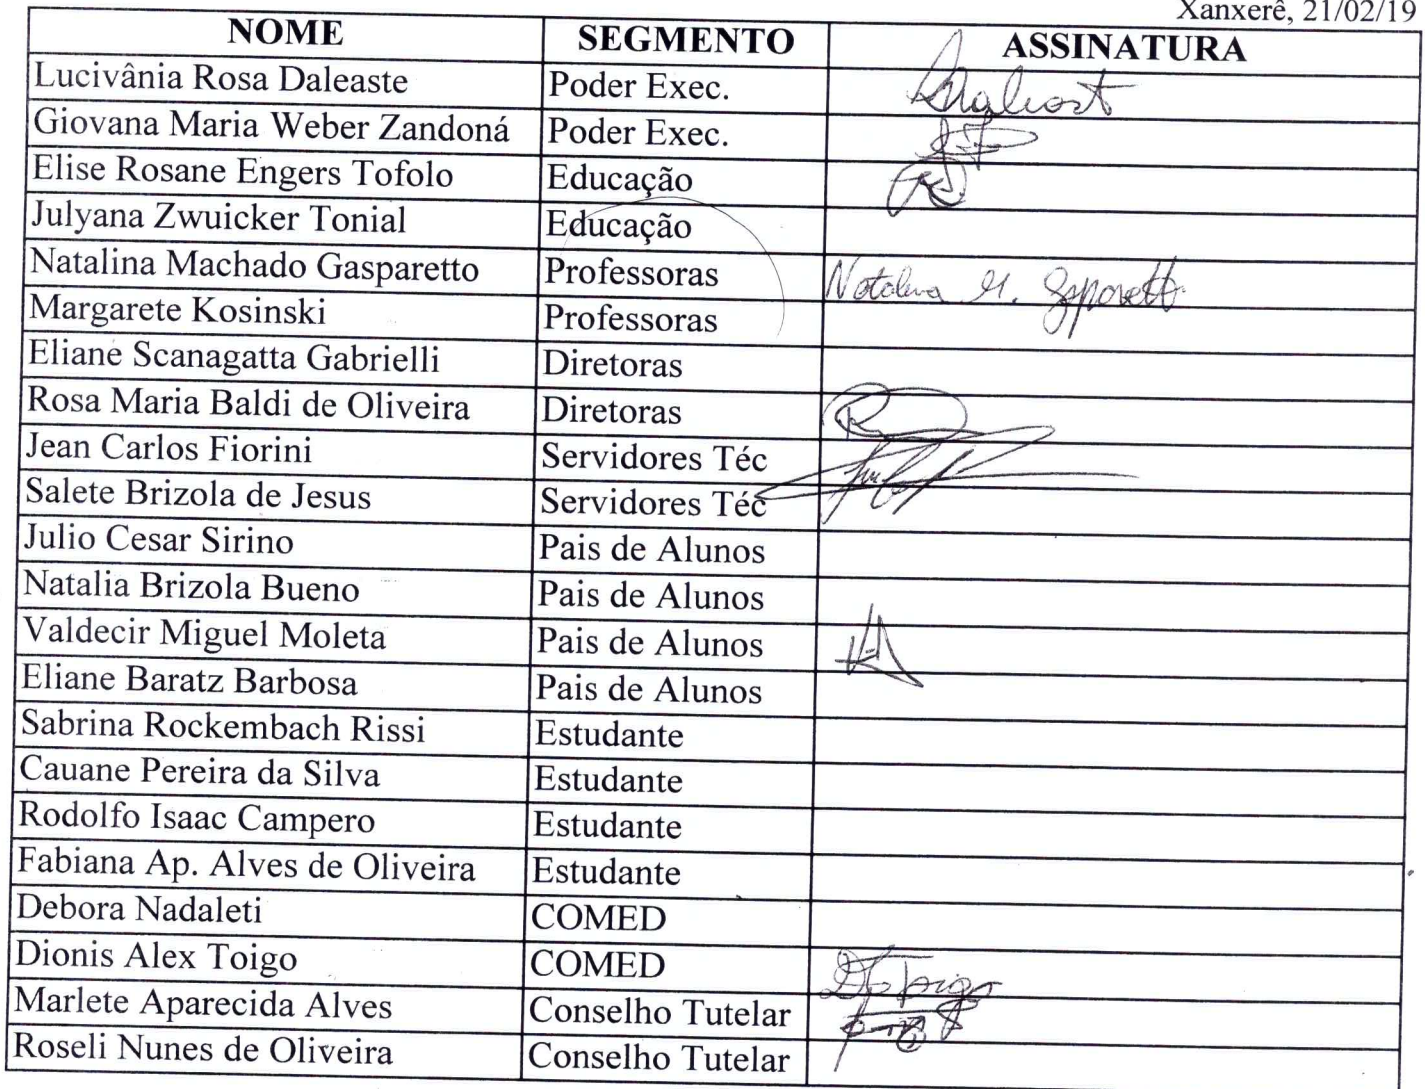 Xanxerê, 21/02/19
NOME SEGMENTO ASSINATURA
Lucivânia Rosa Daleaste Poder Exec.
Giovana Maria Weber Zandoná Poder Exec.
Elise Rosane Engers Tofolo Educação
Julyana Zwuicker Tonial Educação
Natalina Machado Gasparetto Professoras Natalina M. Gasparetto
Margarete Kosinski Professoras
Eliane Scanagatta Gabrielli Diretoras
Rosa Maria Baldi de Oliveira Diretoras
Jean Carlos Fiorini Servidores Téc
Salete Brizola de Jesus Servidores Téc
Julio Cesar Sirino Pais de Alunos
Natalia Brizola Bueno Pais de Alunos
Valdecir Miguel Moleta Pais de Alunos
Eliane Baratz Barbosa Pais de Alunos
Sabrina Rockembach Rissi Estudante
Cauane Pereira da Silva Estudante
Rodolfo Isaac Campero Estudante
Fabiana Ap. Alves de Oliveira Estudante
Debora Nadaleti COMED
Dionis Alex Toigo COMED
Marlete Aparecida Alves Conselho Tutelar
Roseli Nunes de Oliveira Conselho Tutelar